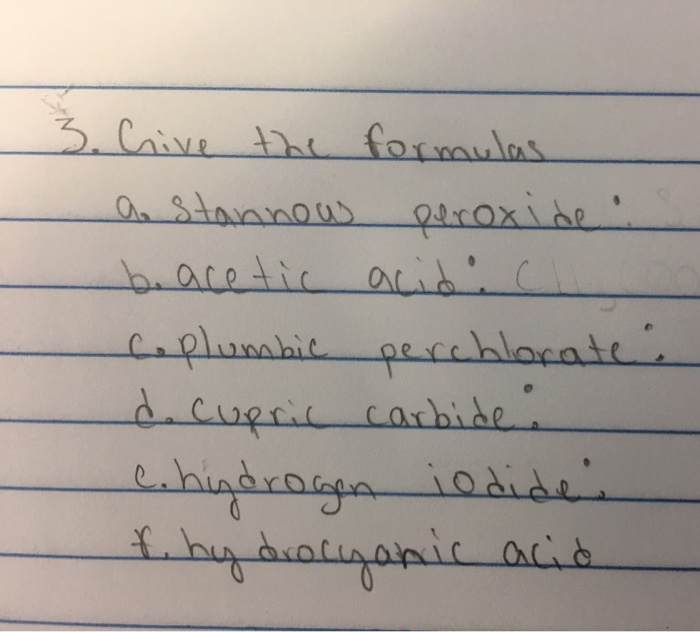 3. Give the formulas
a. stannous peroxide:
b. acetic acid:
c. plumbic perchlorate:
d. cupric carbide:
e. hydrogen iodide:
f. hydrocyanic acid